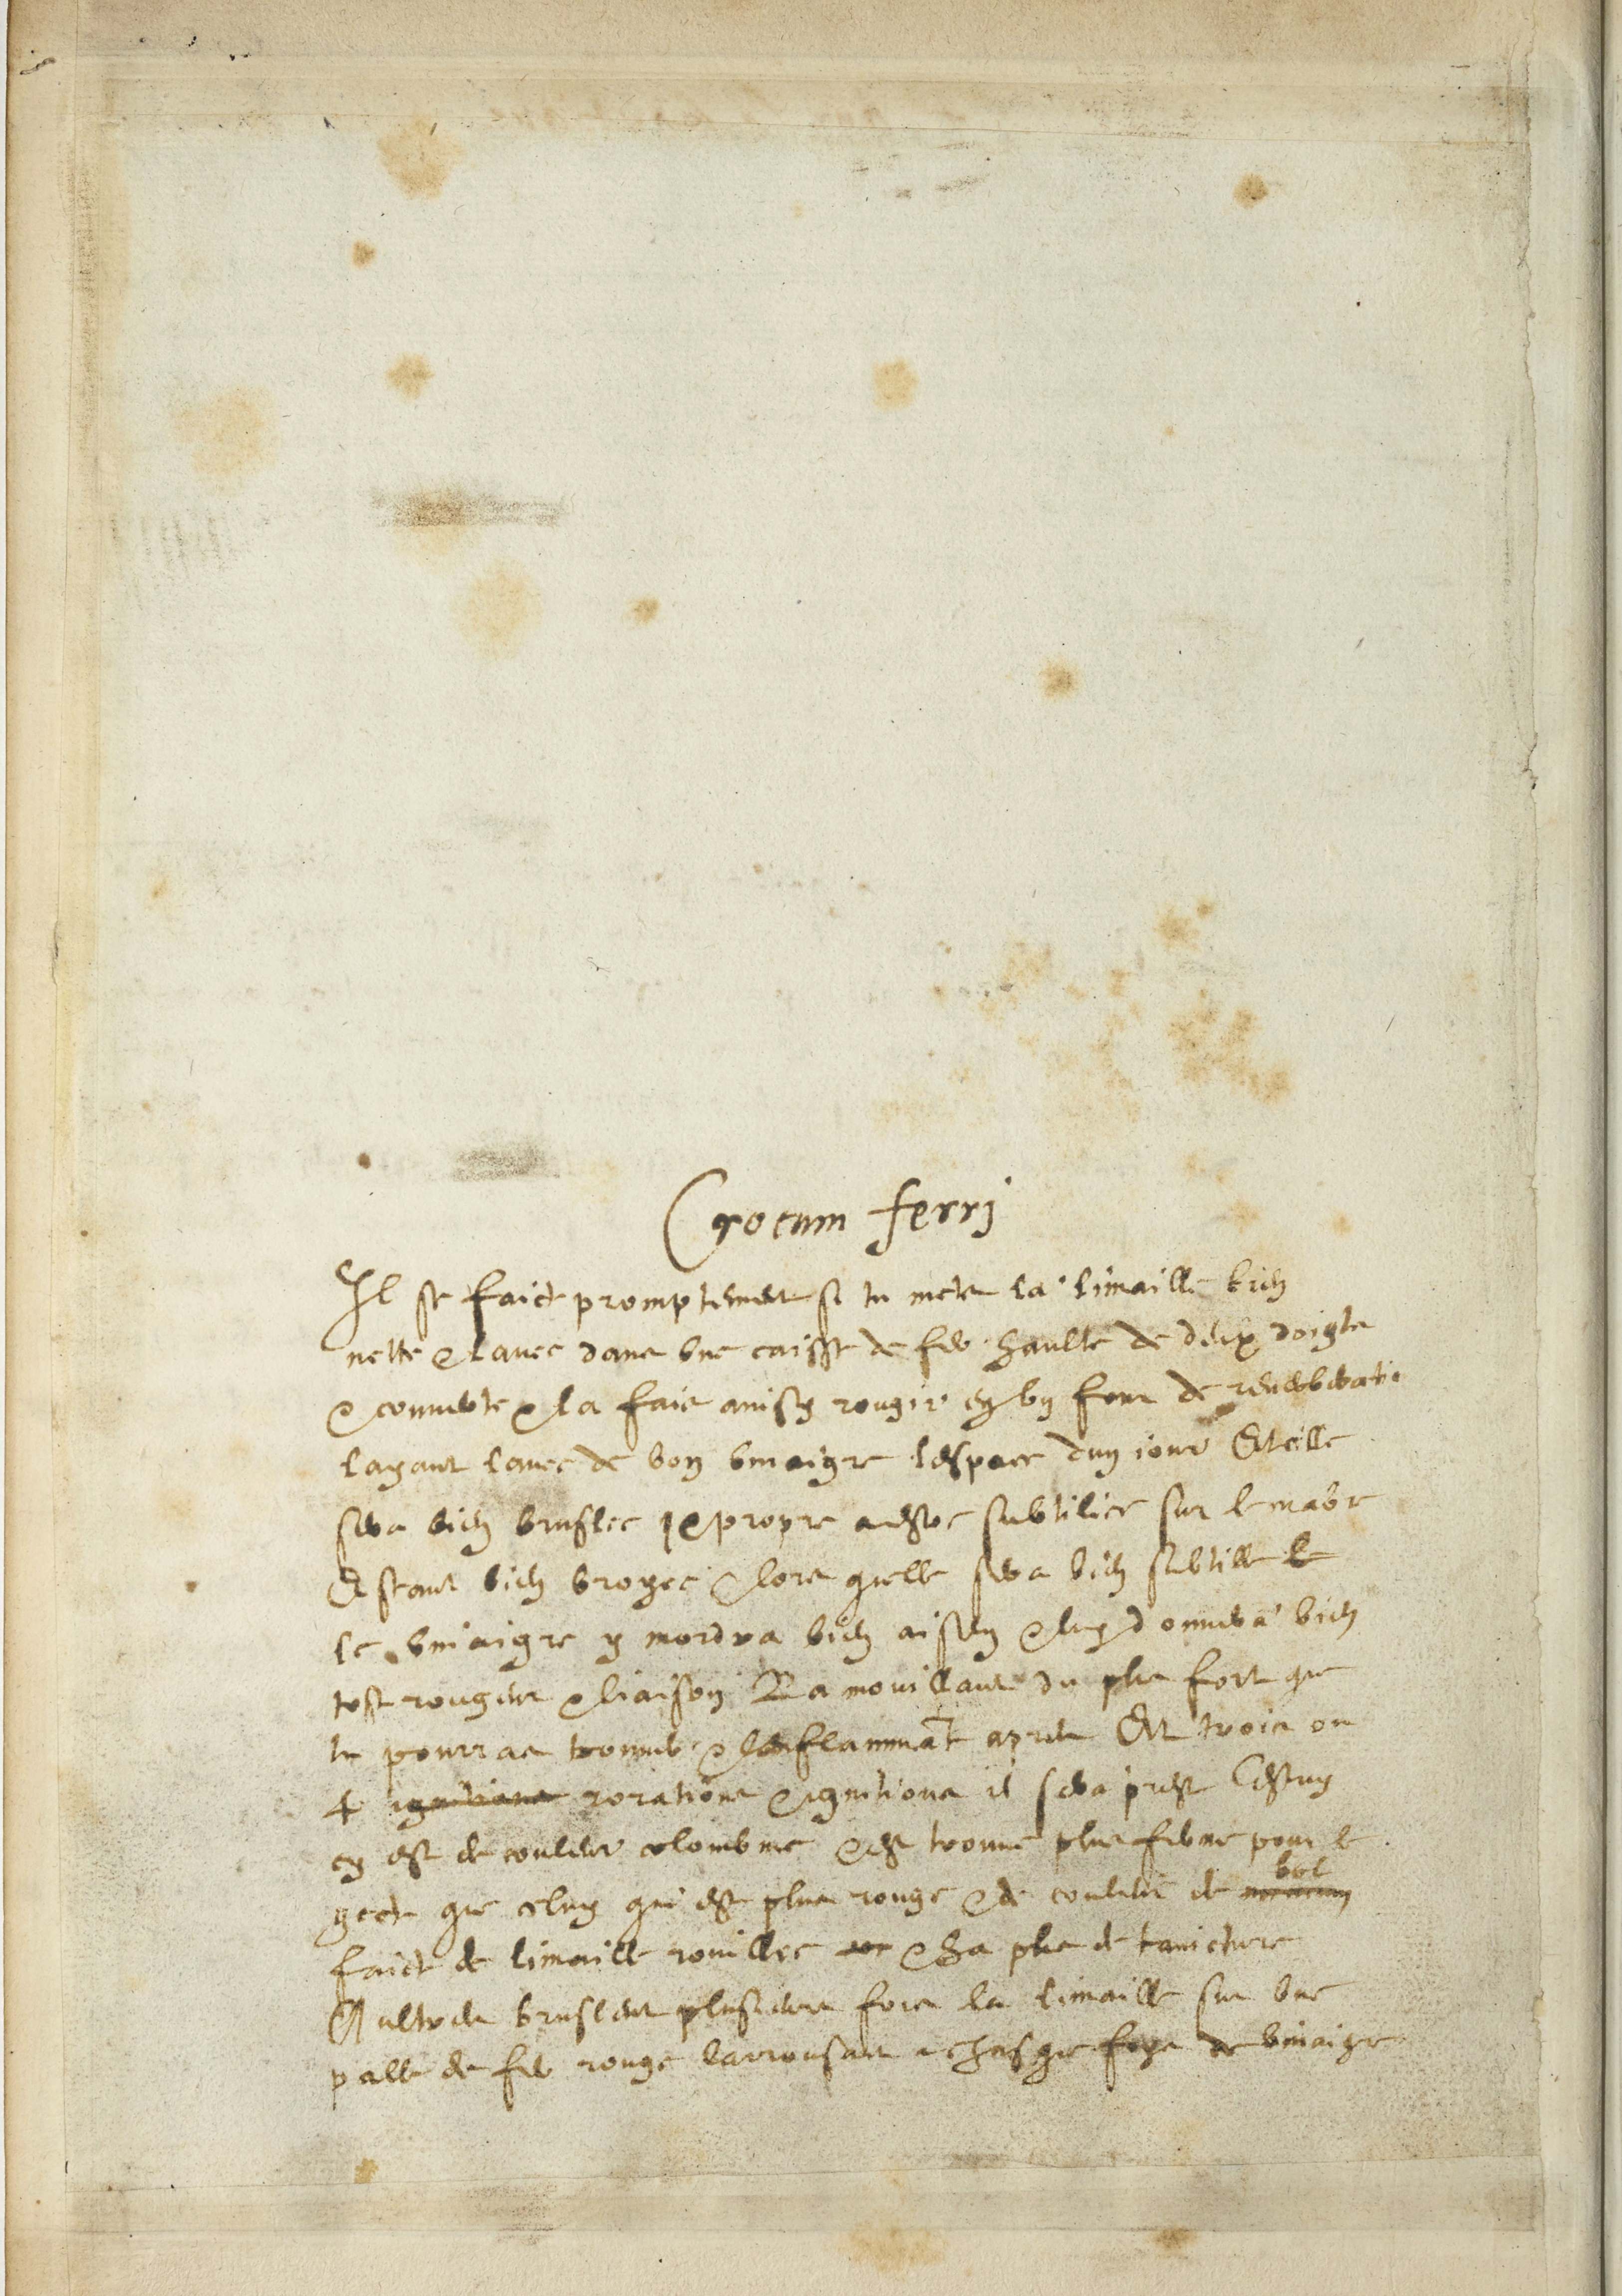 Crocum ferrj
Il se faict promptement si tu mets la limaille bien
nette & lavee dans une caisse de fer haulte de deux doigts
& couverte & la fais ainsy rougir en un four de reverberatio
layant lavee de bon vinaigre lespace dun jour Et elle
sera bien bruslee & propre a estre subtiliee sur le mabre
Estant bien broyee & lors quelle sera bien subtille le
le vinaigre y mordra bien aisem & luy donnera bien
tost rougeur & liaison La mouillant du plus fort que
tu pourras trouver & lenflammant apres Et trois ou
4 ignitions rorations & ignitions il sera prest Cestuy
en est de couleur colombine & est trouve plus ferme pour le
gect que celuy qui est plus rouge & de couleur de bol
faict de limaille rouillee & ha plus de taincture
Aultres bruslent plusieurs fois la limaille sur une
palle de fer rouge larrousant a chasque foys de vinaigre